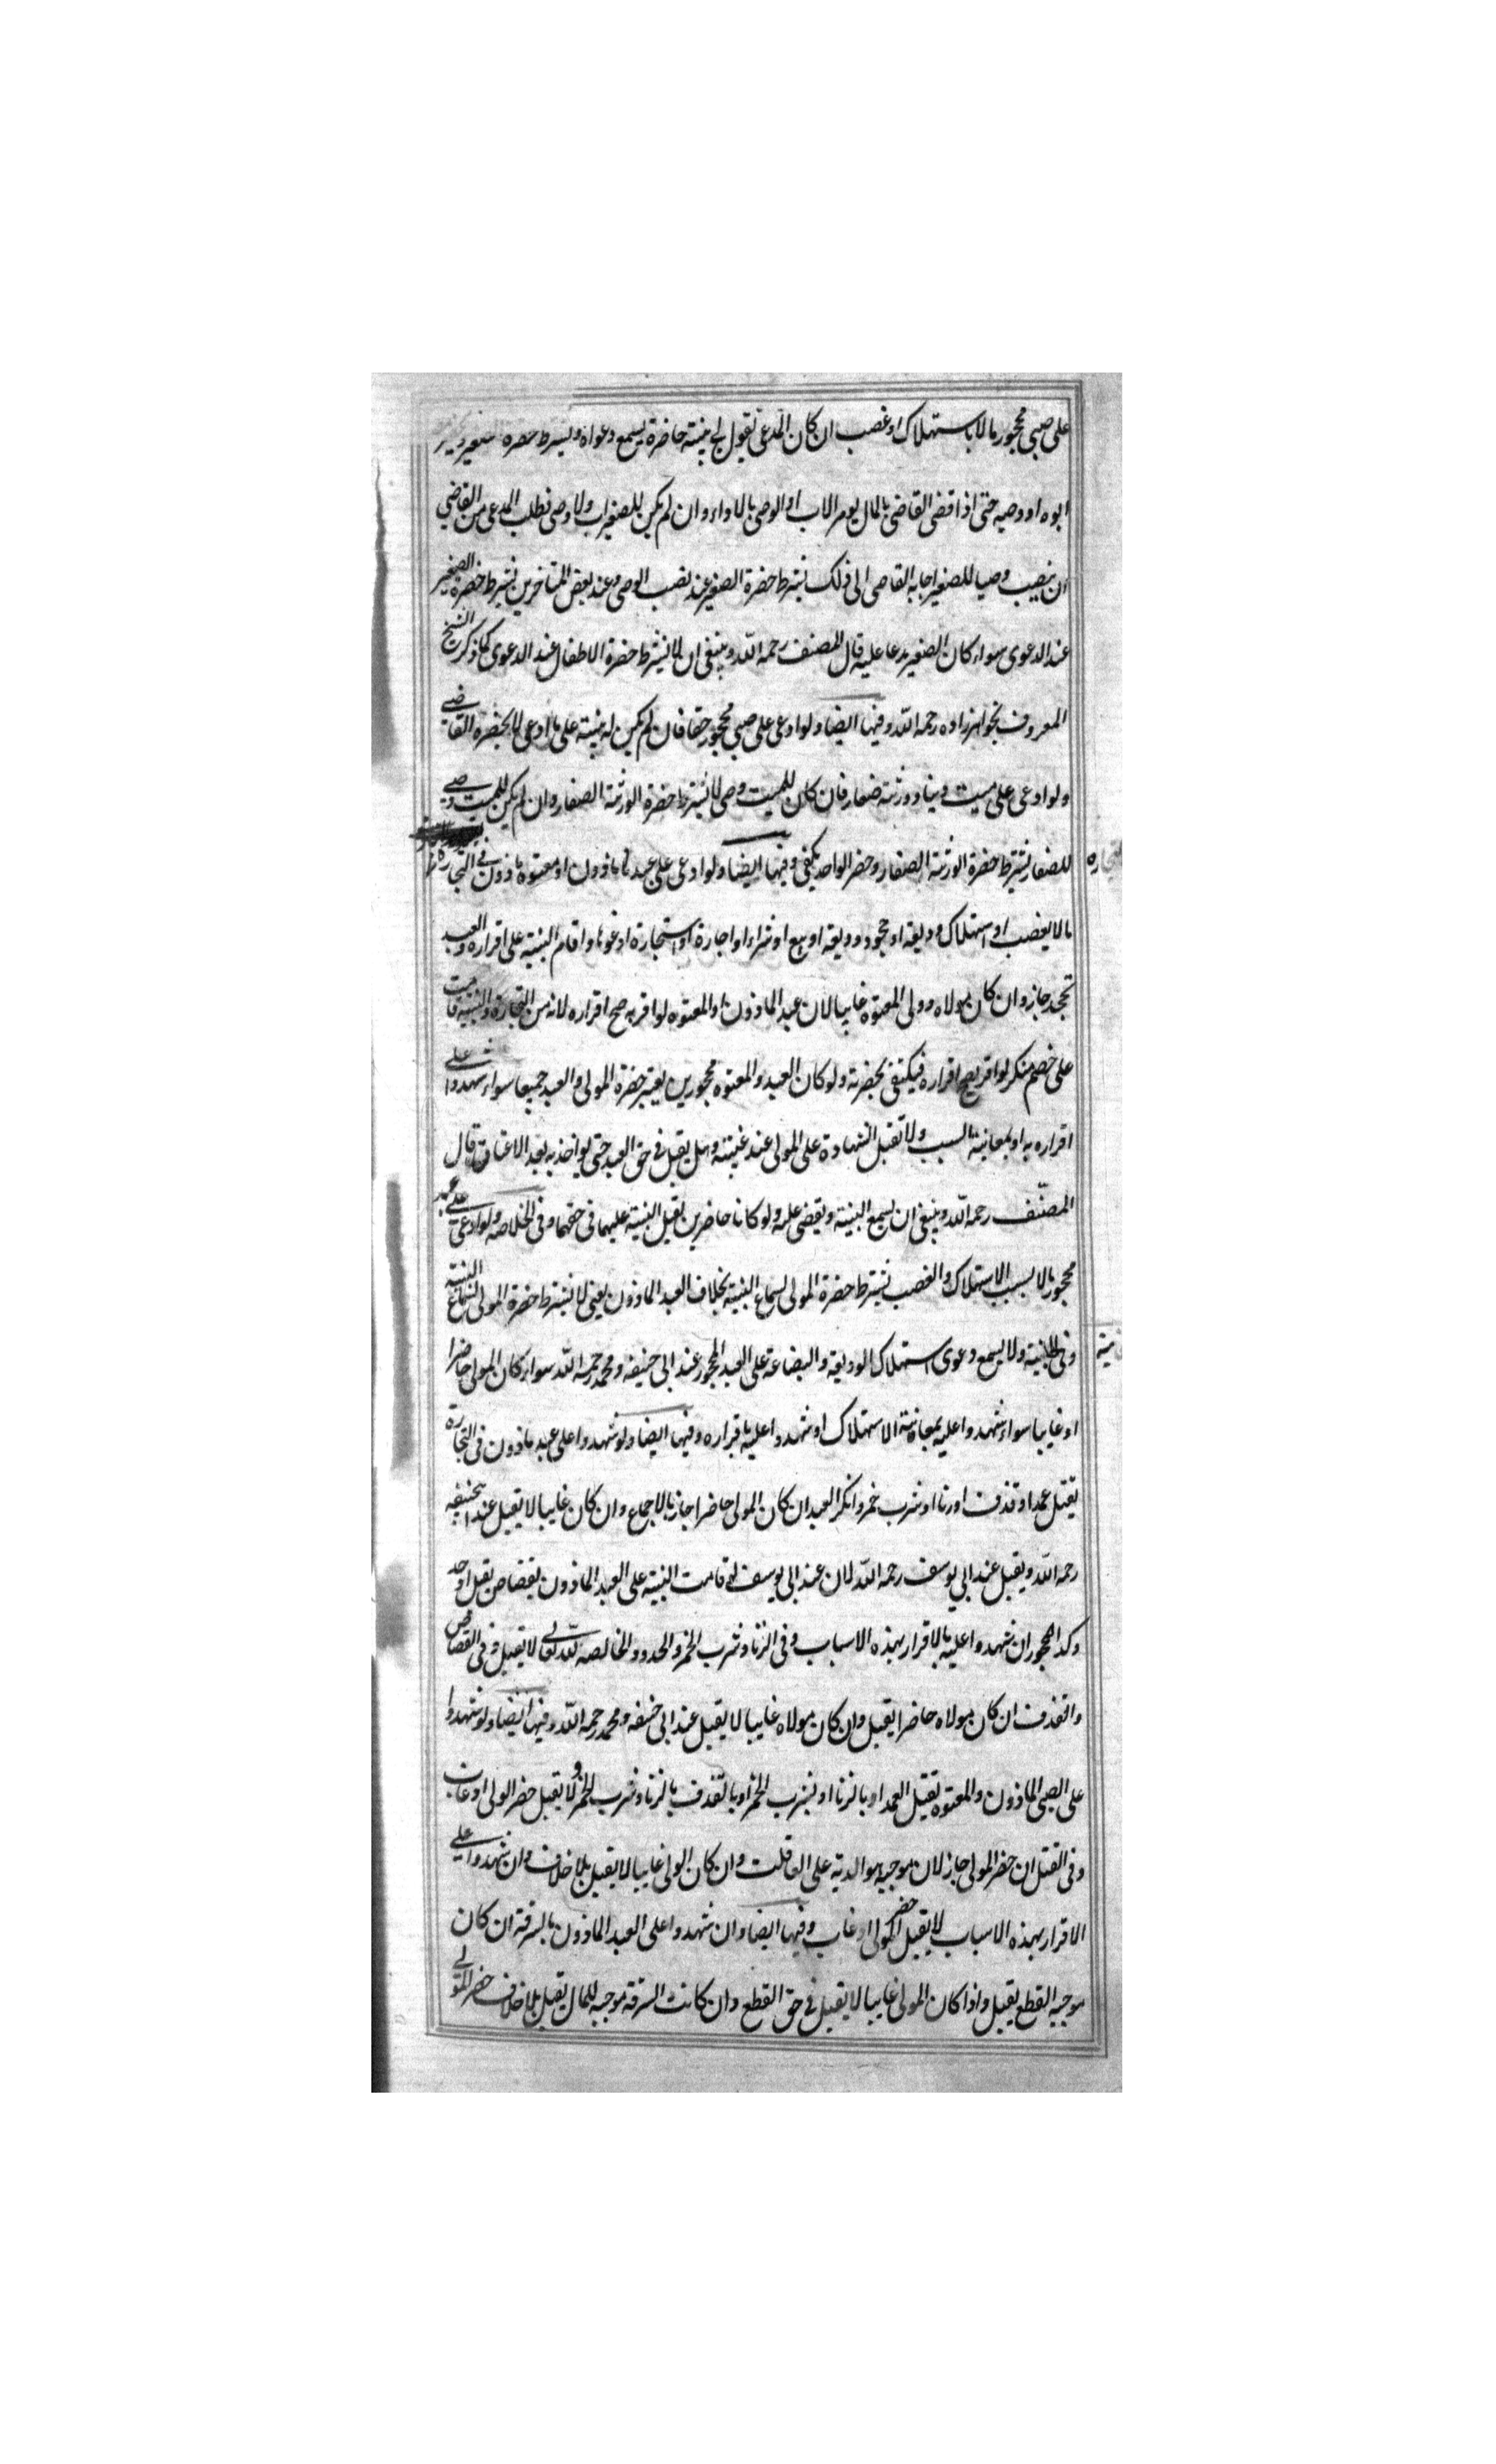 على صبي محجور مالا باستهلاك او غصب ان كان المدعي يقول لي بينة حاضرة يسمع دعواه ويشترط حضرة
ابوه او وصيه حتى اذا قضى القاضي بالمال يومر الاب او الوصي بالاداء وان لم يكن للصغير اب ولا وصي فطلب المدعي من القاضي
ان ينصب وصيا للصغير اجابه القاضي الى ذلك يشترط حضرة الصغير عند نصب الوصي وعند بعض المتاخرين يشترط حضرة الصغير
عند الدعوى سواء كان الصغير مدعا عليه قال المصنف رحمه الله وينبغي ان لا يشترط حضرة الاطفال عند الدعوى كما ذكر الشيخ
المعروف بخواهرزاده رحمه الله وفيها ايضا ولو ادعى على صبي محجور حقا فان لم يكن له بينة على ما ادعى لا يحضره القاضي
ولو ادعى على ميت دينا وورثته صغار فان كان للميت وصي لا يشترط حضرة الورثة الصغار وان لم يكن للميت وصي
للصغار يشترط حضرة الورثة الصغار وحضر الواحد يكفي وفيها ايضا ولو ادعى على عبد ماذون او معتوه ماذون في التجارة
مالا بغصب او استهلاك وديعة او جحود وديعة او بيع او شراء او اجارة او استجارة ادعوا واقام البينة على اقراره والعبد
يجحد جاز وان كان مولاه وولي المعتوه غايبا لان عبد الماذون او المعتوه لو اقر به صح اقراره لانه من التجارة والبينة قامت
على خصم منكر لو اقر يصح اقراره فيكتفى بحضرته ولو كان العبد والمعتوه محجورين يعتبر حضرة المولى والعبد جميعا سواء شهدوا على
اقراره به او بمعاينة السبب ولا تقبل الشهادة على المولى عند غيبته وهل يقبل في حق العبد حتى يواخذ به بعد الاعتاق قال
المصنف رحمه الله وينبغي ان يسمع البينة ويقضى عليه ولو كانا حاضرين تقبل البينة عليهما في حقهما وفي الخلاصه ولو ادعى على عبد
محجور مالا بسبب الاستهلاك والغصب يشترط حضرة المولى لسماع البينة بخلاف العبد الماذون يعني لا يشترط حضرة المولى لسماع البينة
وفي الخانية ولا يسمع دعوى استهلاك الوديعة والبضاعة على العبد المحجور عند ابي حنيفه ومحمد رحمه الله سواء كان المولى حاضرا
او غايبا سواء شهدوا عليه بمعاينة الاستهلاك او شهدوا عليه باقراره وفيها ايضا ولو شهدوا على عبد ماذون في التجارة
بقتل عمد او قذف او زنا او شرب خمر وانكر العبد ان كان المولى حاضرا جاز بالاجماع وان كان غايبا لا يقبل عند ابي حنيفه
رحمه الله ويقبل عند ابي يوسف رحمه الله لان عند ابي يوسف لو قامت البينة على العبد الماذون بقصاص يقبل
وكذا المحجور ان شهدوا عليه بالاقرار بهذه الاسباب وفي الزنا وشرب الخمر والحدود الخالصه لله تعالى لا يقبل وفي القصاص
والقذف ان كان مولاه حاضرا يقبل وان كان مولاه غايبا لا يقبل عند ابي حنيفه ومحمد رحمه الله وفيها ايضا ولو شهدوا
على الصبي الماذون والمعتوه بقتل العمد او بالزنا او بشرب الخمر او بالقذف بالزنا وشرب الخمر لا يقبل حضر الولي او غاب
وفي القتل ان حضر المولى جاز لان موجبه هو الدية على العاقلة وان كان الولي غايبا لا يقبل بلا خلاف وان شهدوا على
الاقرار بهذه الاسباب لا يقبل حضر المولى او غاب وفيها ايضا وان شهدوا على العبد الماذون بالسرقة ان كان
موجبه القطع يقبل واذا كان المولى غايبا لا يقبل في حق القطع وان كانت السرقة موجبه للمال يقبل بلا خلاف حضر المولى